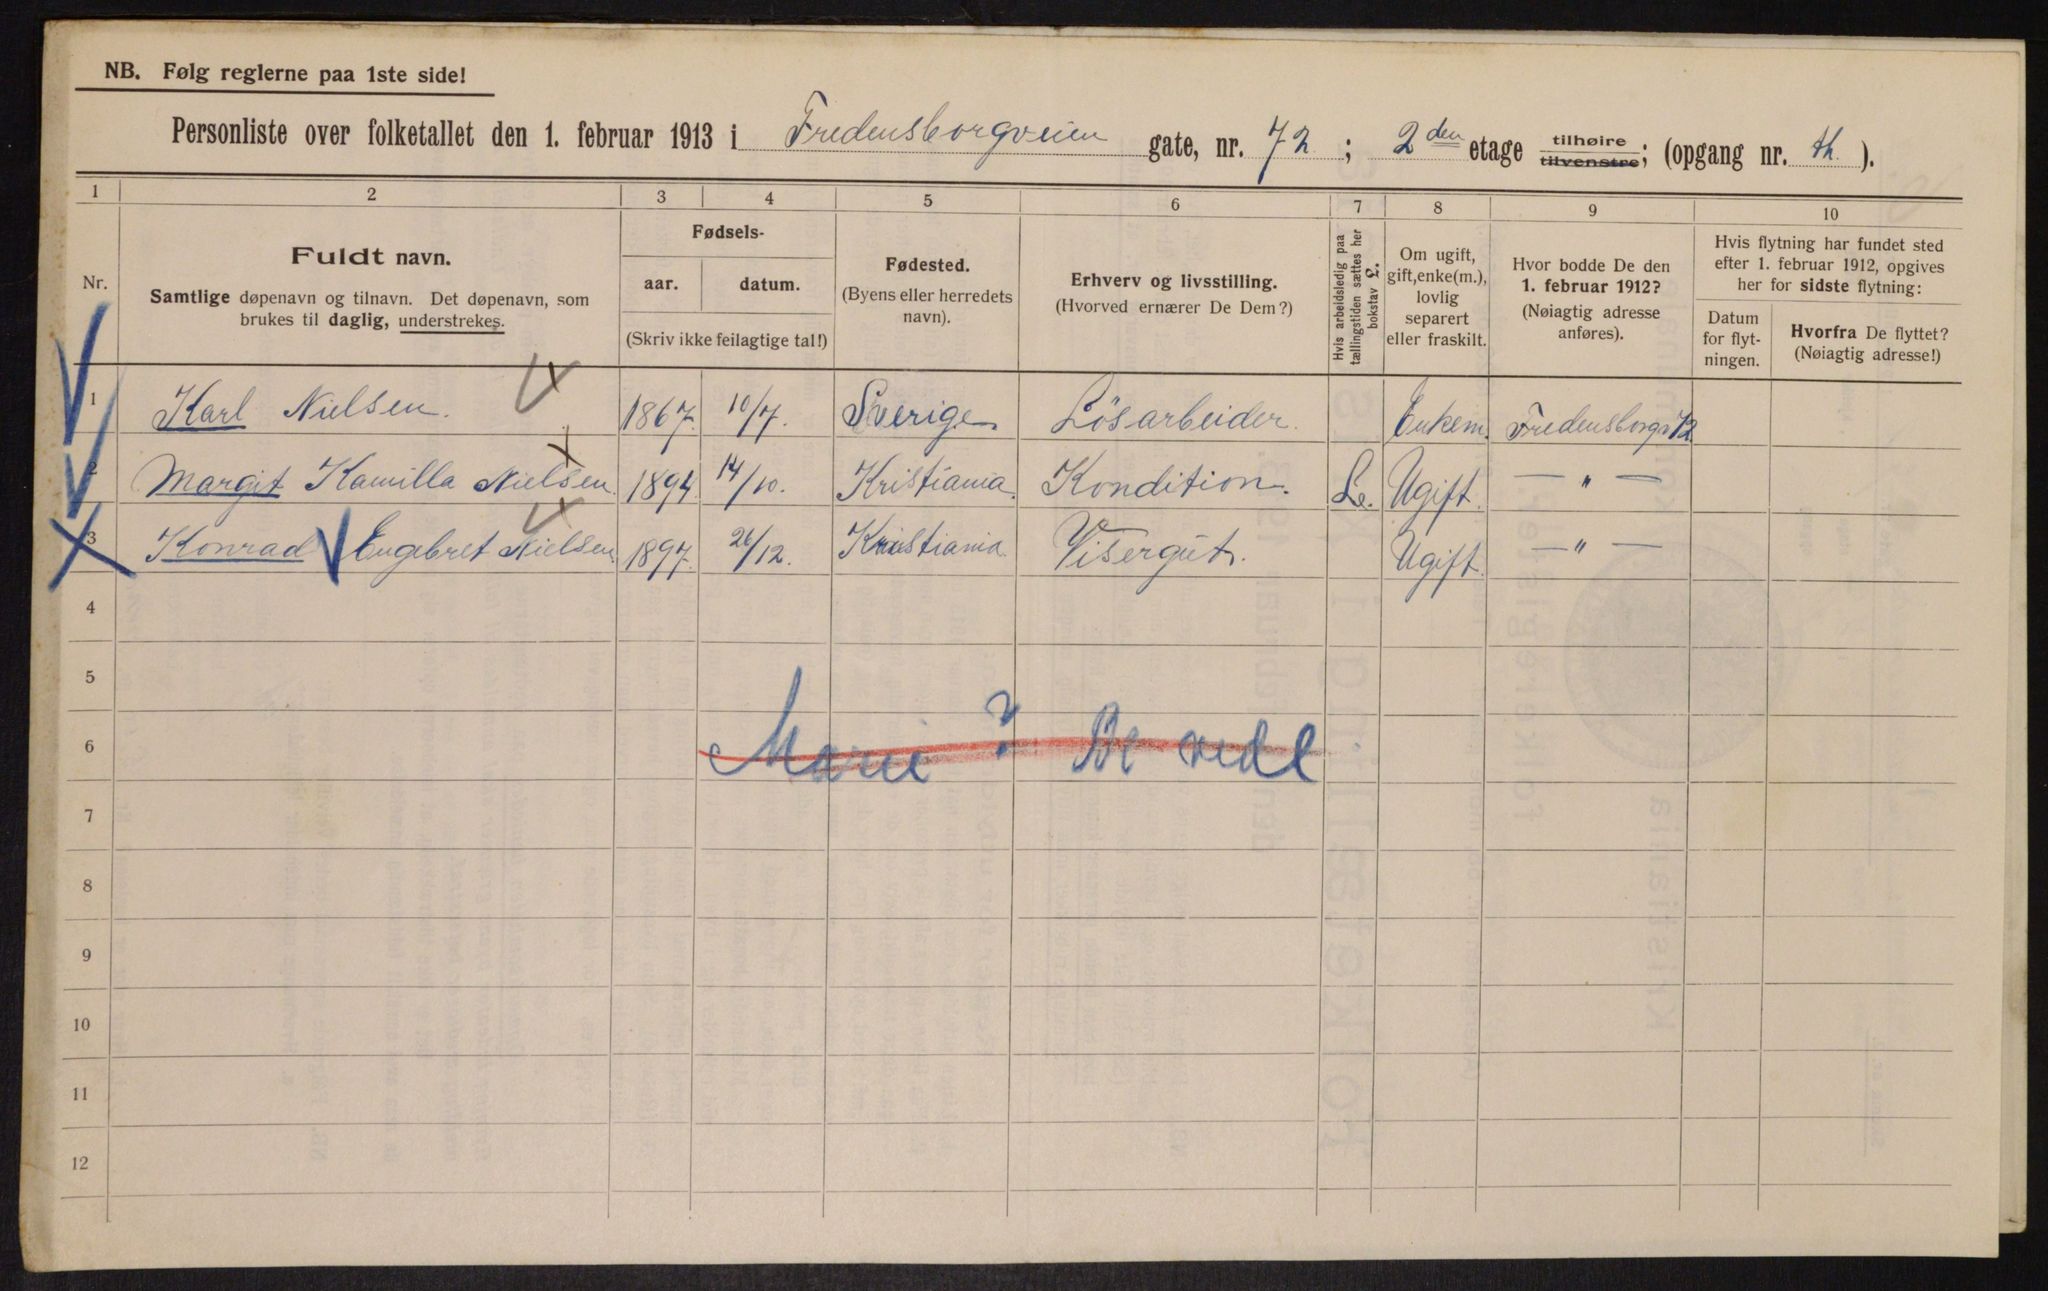 NB. Følg reglerne paa 1ste side!
Personliste over folketallet den 1. februar 1913 i Fredensborgveien gate, nr. 72 ; 2den etage tilhøire tilvenstre; (opgang nr. th. ).
1 2 3 4 5 6 7 8 9 10
Nr.
Fuldt navn.
Samtlige døpenavn og tilnavn. Det døpenavn, som
brukes til daglig, understrekes.
Fødsels-
aar. datum.
(Skriv ikke feilagtige tal!)
Fødested.
(Byens eller herredets
navn).
Erhverv og livsstilling.
(Hvorved ernærer De Dem?)
Hvis arbeidsledig paa
tællingstiden sættes her
bokstav L.
Om ugift,
gift, enke(m.),
lovlig
separert
eller fraskilt.
Hvor bodde De den
1. februar 1912?
(Nøiagtig adresse
anføres).
Hvis flytning har fundet sted
efter 1. februar 1912, opgives
her for sidste flytning:
Datum
for flyt-
ningen.
Hvorfra De flyttet?
(Nøiagtig adresse!)
1 Karl Nielsen. 1867. 10/7. Sverige Lösarbeider. Enkem. Fredensborgv 72
2 Margit Kamilla Nielsen. 1894. 14/10. Kristiania. Kondition. L. Ugift. — " —
3 Konrad Engebret Nielsen. 1897. 26/12. Kristiania. Visergut. Ugift. — " —
4
5
6 Marie ?
7
8
9
10
11
12